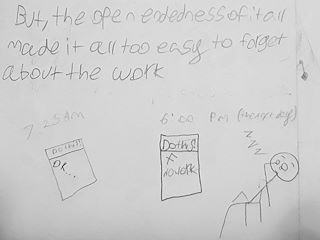 But, the open endedness of it all
made it all too easy to forget
about the work
7:25 AM
6:00 PM (the next day)
Do this!
OK...
Do this!
no work
z z z z